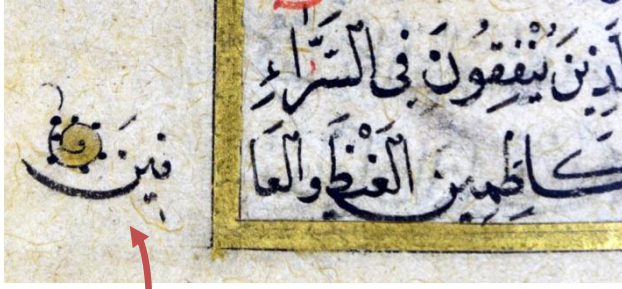 لَّذِينَ يُنْفِقُونَ فِى السَّرَّاءِ
كَاظِمِينَ الْغَيْظَ وَالْعَا
فِينَ